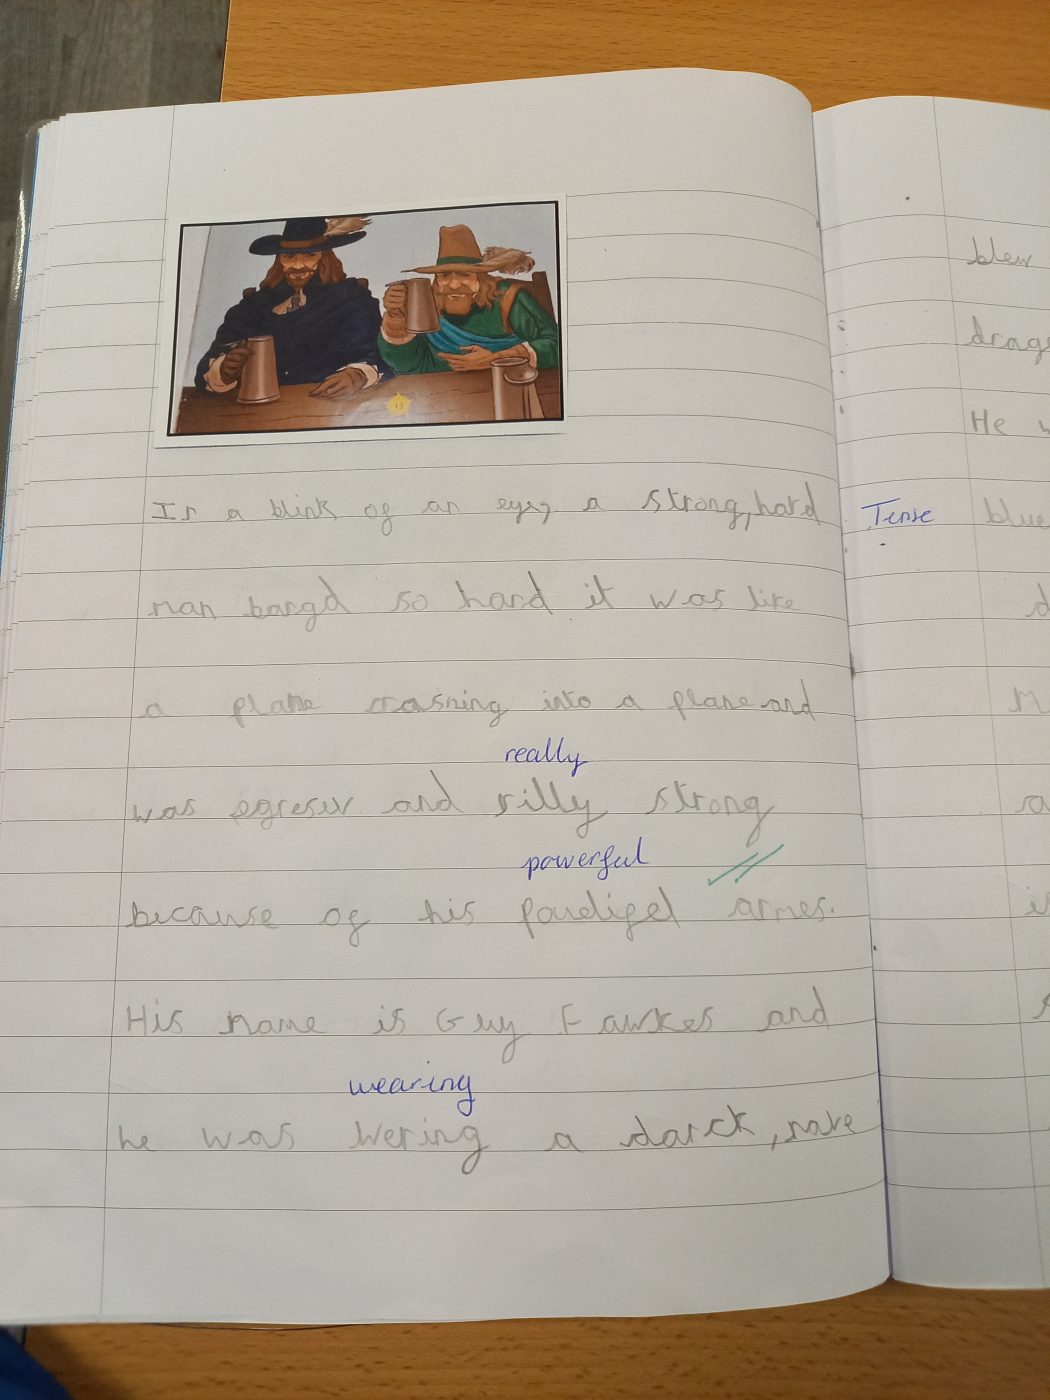 In a blink of an eye, a strong, hard
man bangd so hard it was like
a plane crashing into a plane and
really
was egreser and rilly strong
powerful
because of his poudigel armes.
His name is Guy Fawkes and
wearing
he was wering a darck, nave
Tense
blew
drag
He w
blue
d
a
is